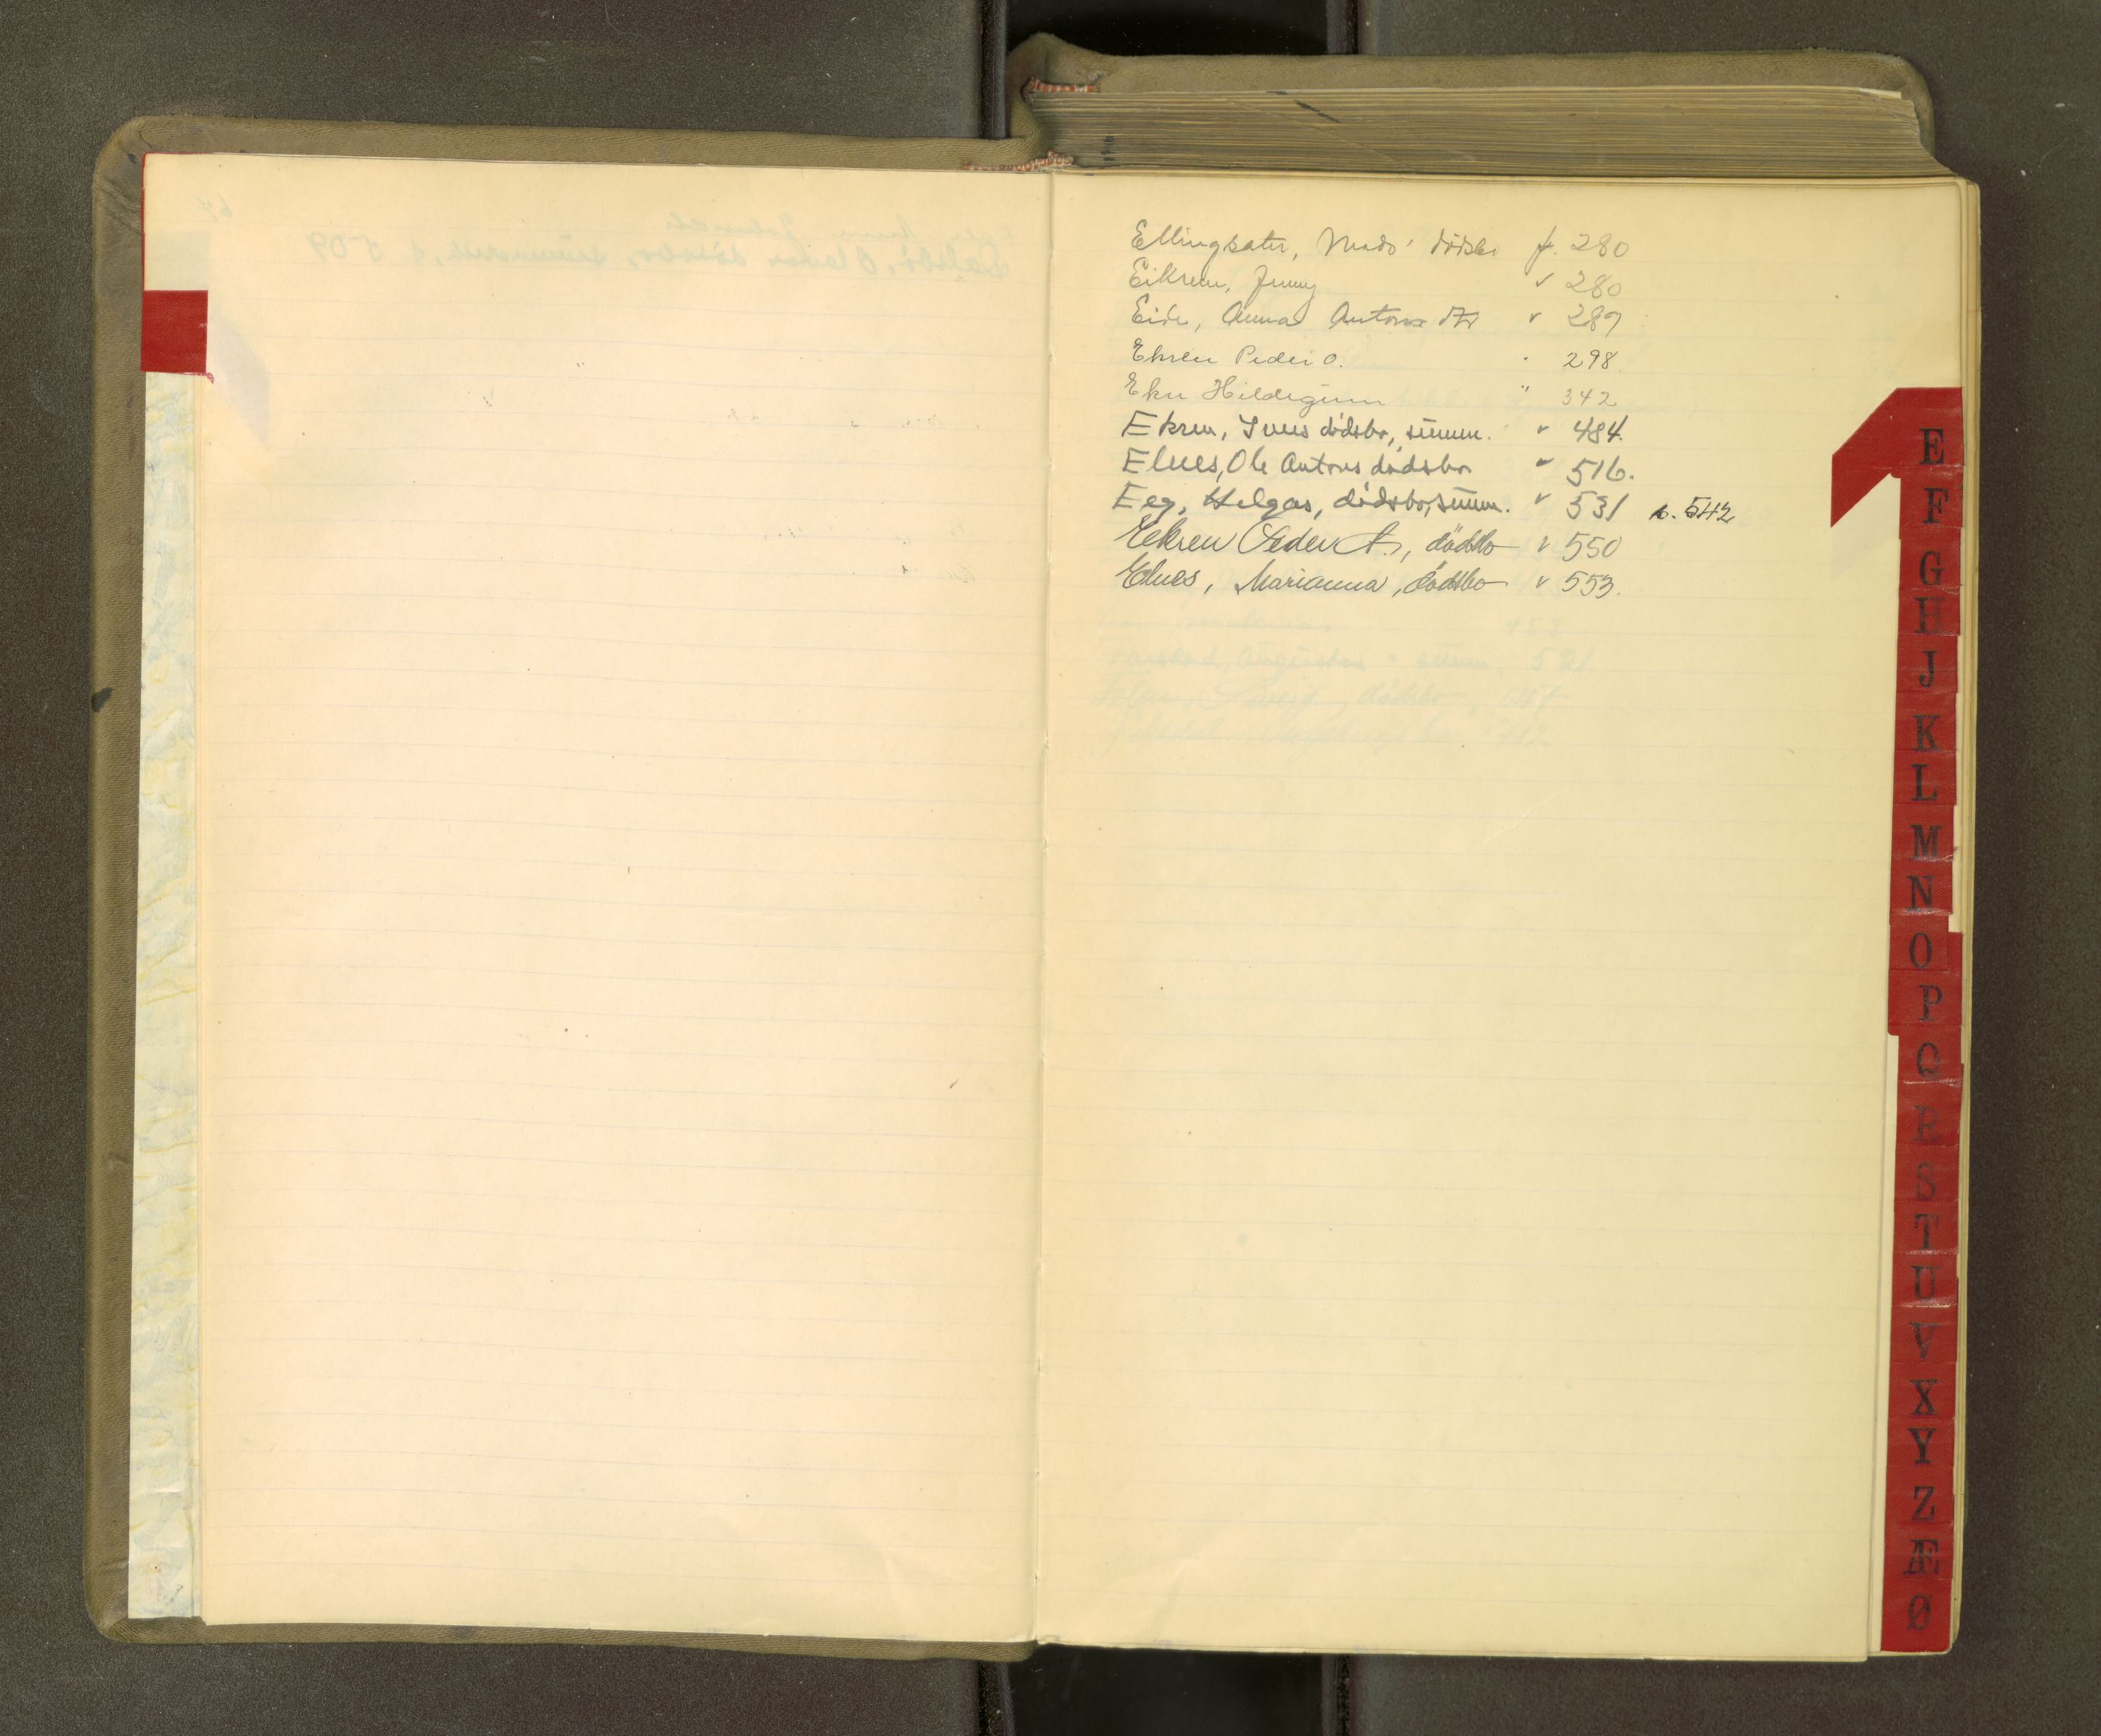 Ellingsæter, Mads' dödsbo f. 280
Eikrem, Jenny " 280
Eide, Anna Antons dtr " 289
Ekren Peder O. " 298
Eken Hildegunn " 342
Ekren, Ivers dödsbo, summ. " 484.
Elnes, Ole Antons dödsbo " 516.
Eeg, Helgas, dödsbo, summ. " 531 s. 542
Eekren Peder A., dödsbo " 550
Elnes, Marianna, dödsbo " 553.
E
F
G
H
J
K
L
M
N
O
P
Q
R
S
T
U
V
X
Y
Z
Æ
Ø